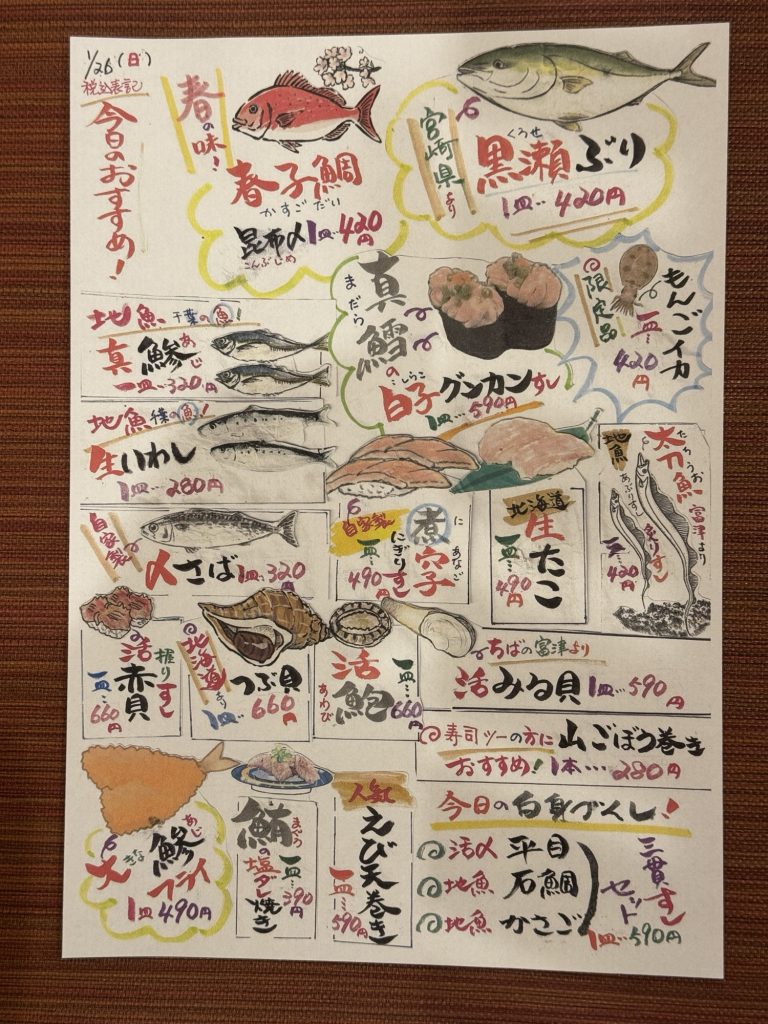 1/26(日)
税込表記
今日のおすすめ!
春の味!
春子鯛
かすごだい
昆布〆1皿…420円
こんぶじめ
宮崎県より
くろせ
黒瀬ぶり
1皿…420円
地魚 千葉の魚!
真鯵
あじ
一皿…320円
まだら
真鱈の
しらこ
白子グンカンすし
1皿…590円
限定品
もんごイカ
一皿…420円
地魚 千葉の魚!
生いわし
1皿…280円
自家製
〆さば 1皿…320円
自家製
煮穴子
に あなご
にぎりすし
一皿…490円
北海道
生たこ
一皿…490円
地魚
たちうお
太刀魚
富津より
あぶりすし
炙りすし
一皿…420円
活赤貝
握りすし
一皿…660円
北海道より
つぶ貝
1皿…660円
活鮑
あわび
一皿…660円
ちばの富津より
活みる貝 1皿…590円
寿司ツーの方に 山ごぼう巻き
おすすめ! 1本…280円
大きな
あじ
鯵フライ
1皿490円
まぐろ
鮪の塩ダレ焼き
一皿…390円
人気
えび天巻き
一皿…590円
今日の白身づくし!
活〆 平目
地魚 石鯛
地魚 かさご
三貫すしセット
1皿…590円